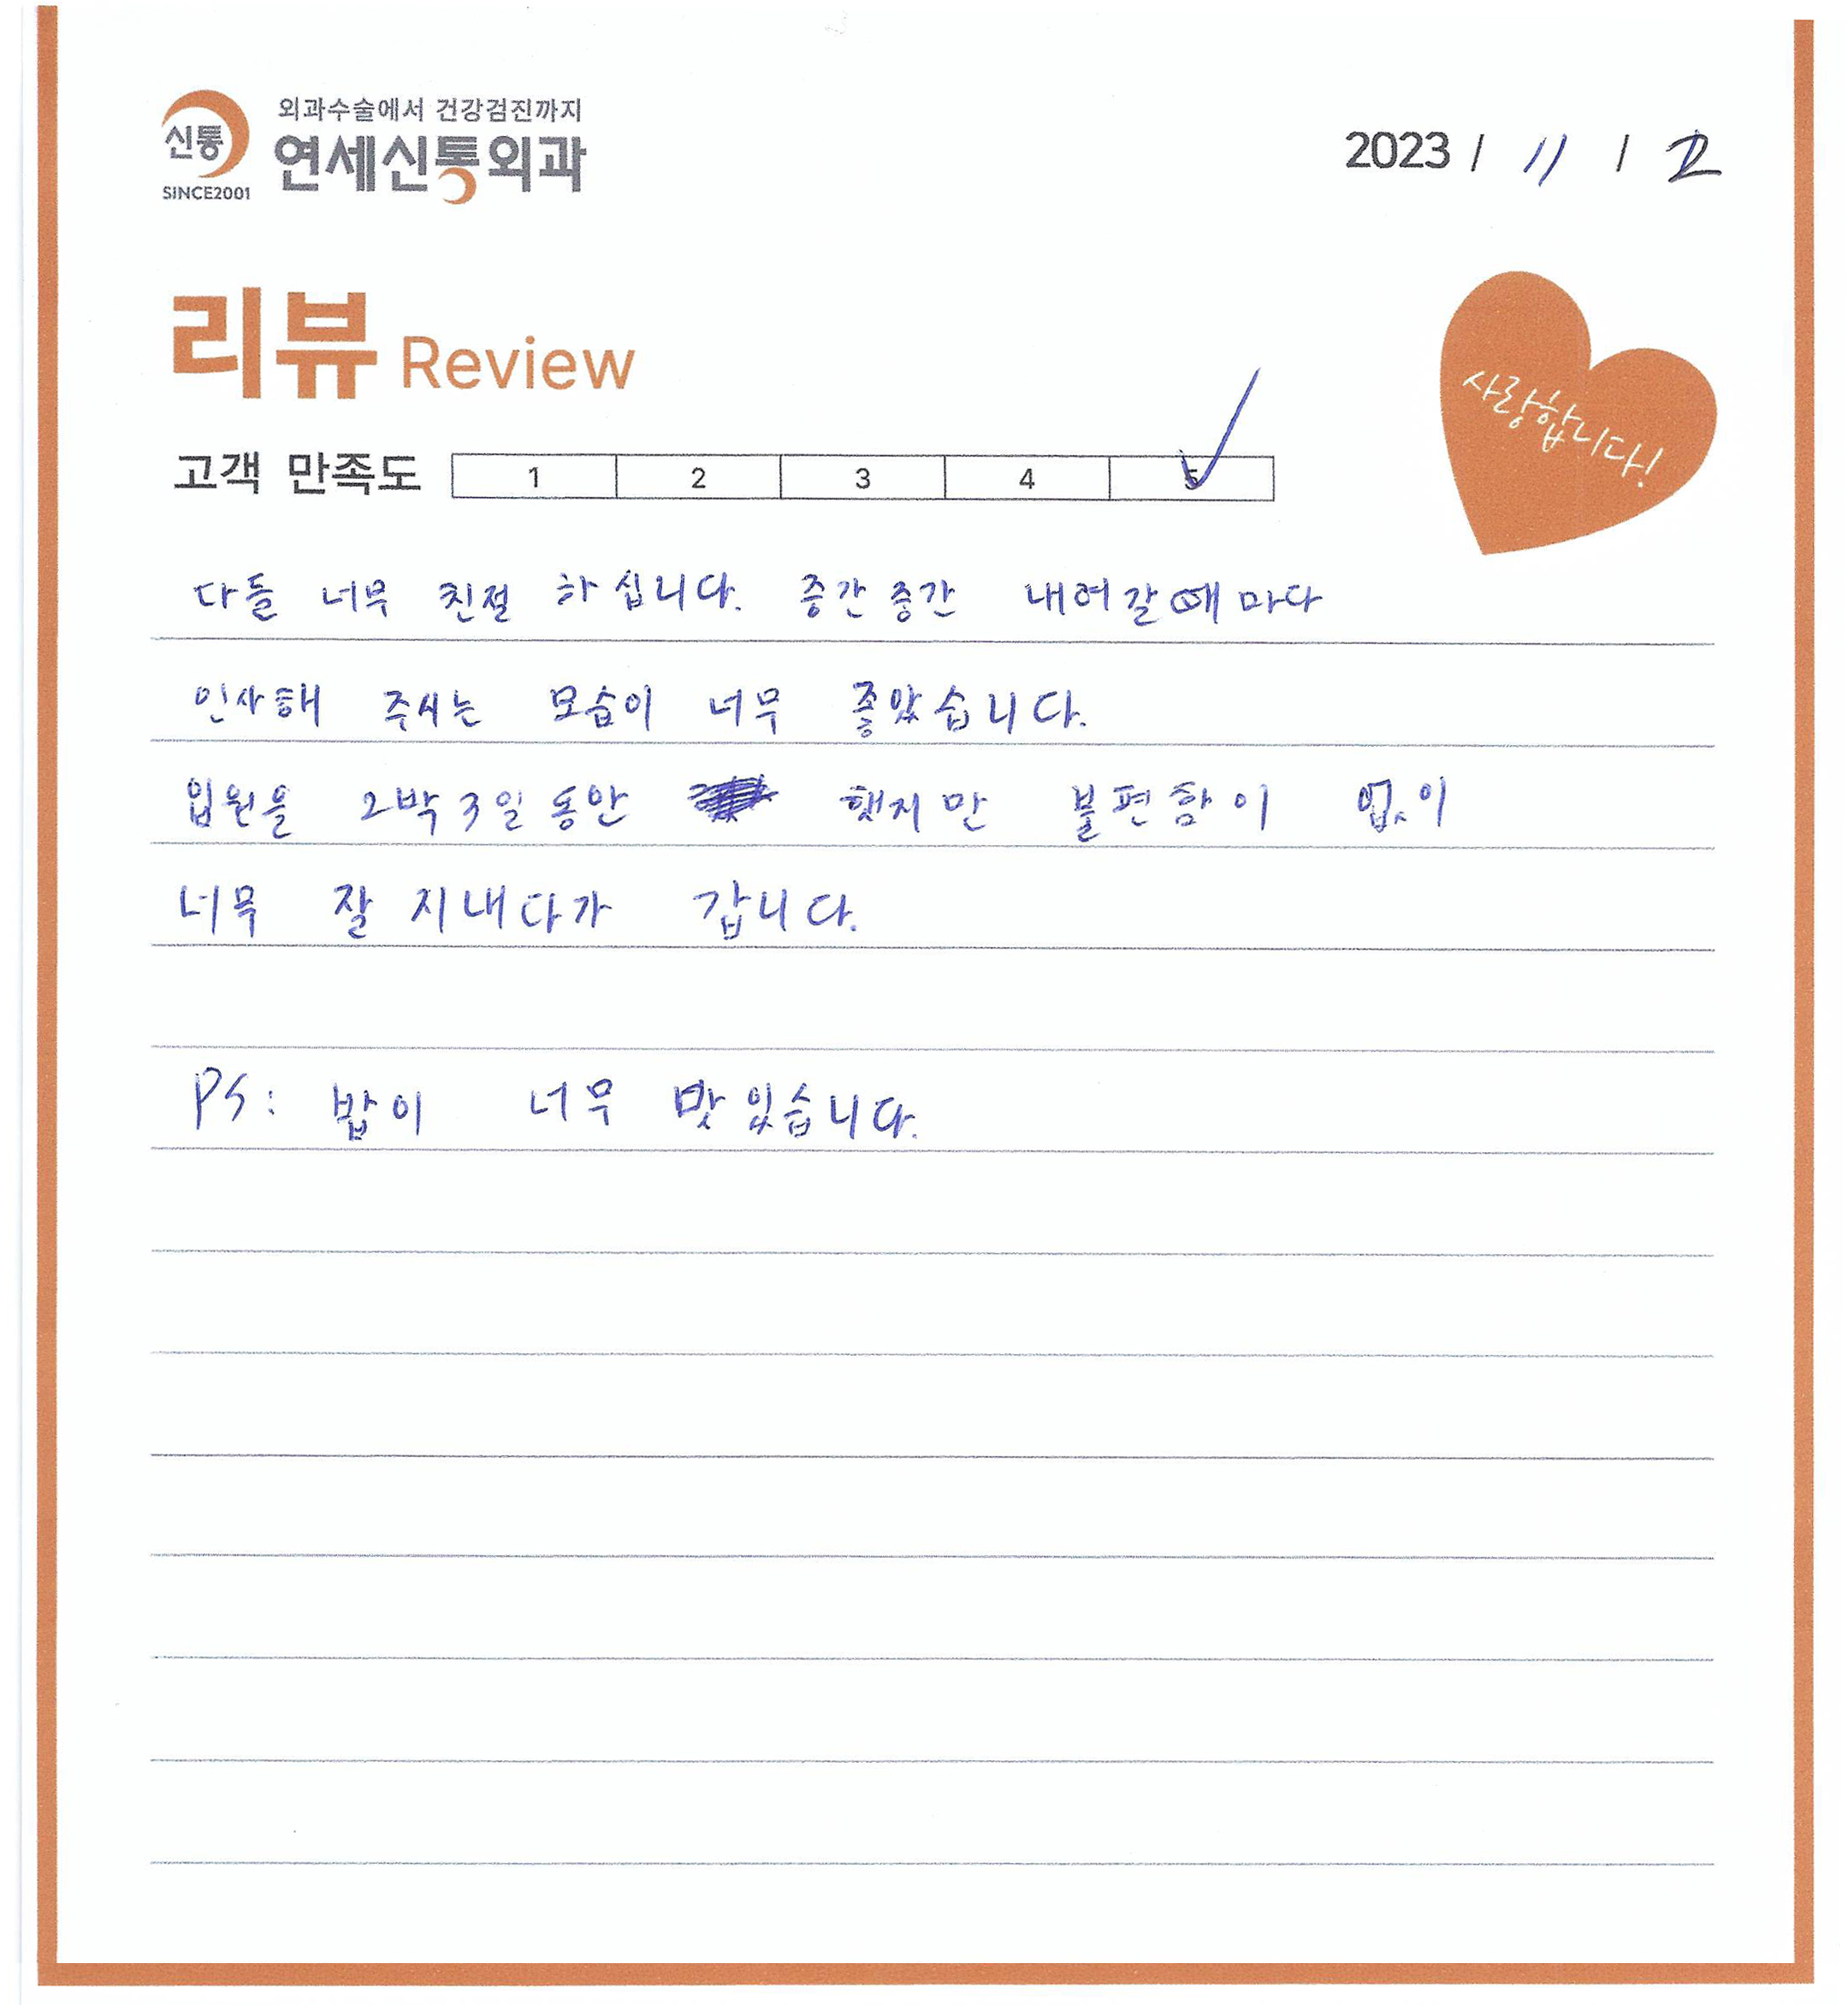 외과수술에서 건강검진까지
신통
연세신통외과
SINCE2001
2023 / 11 / 2
리뷰 Review
사랑합니다!
고객 만족도 1 2 3 4 5
다들 너무 친절 하십니다. 중간중간 내려갈때마다
인사해 주시는 모습이 너무 좋았습니다.
입원을 2박3일동안 했지만 불편함이 없이
너무 잘 지내다가 갑니다.
PS: 밥이 너무 맛있습니다.